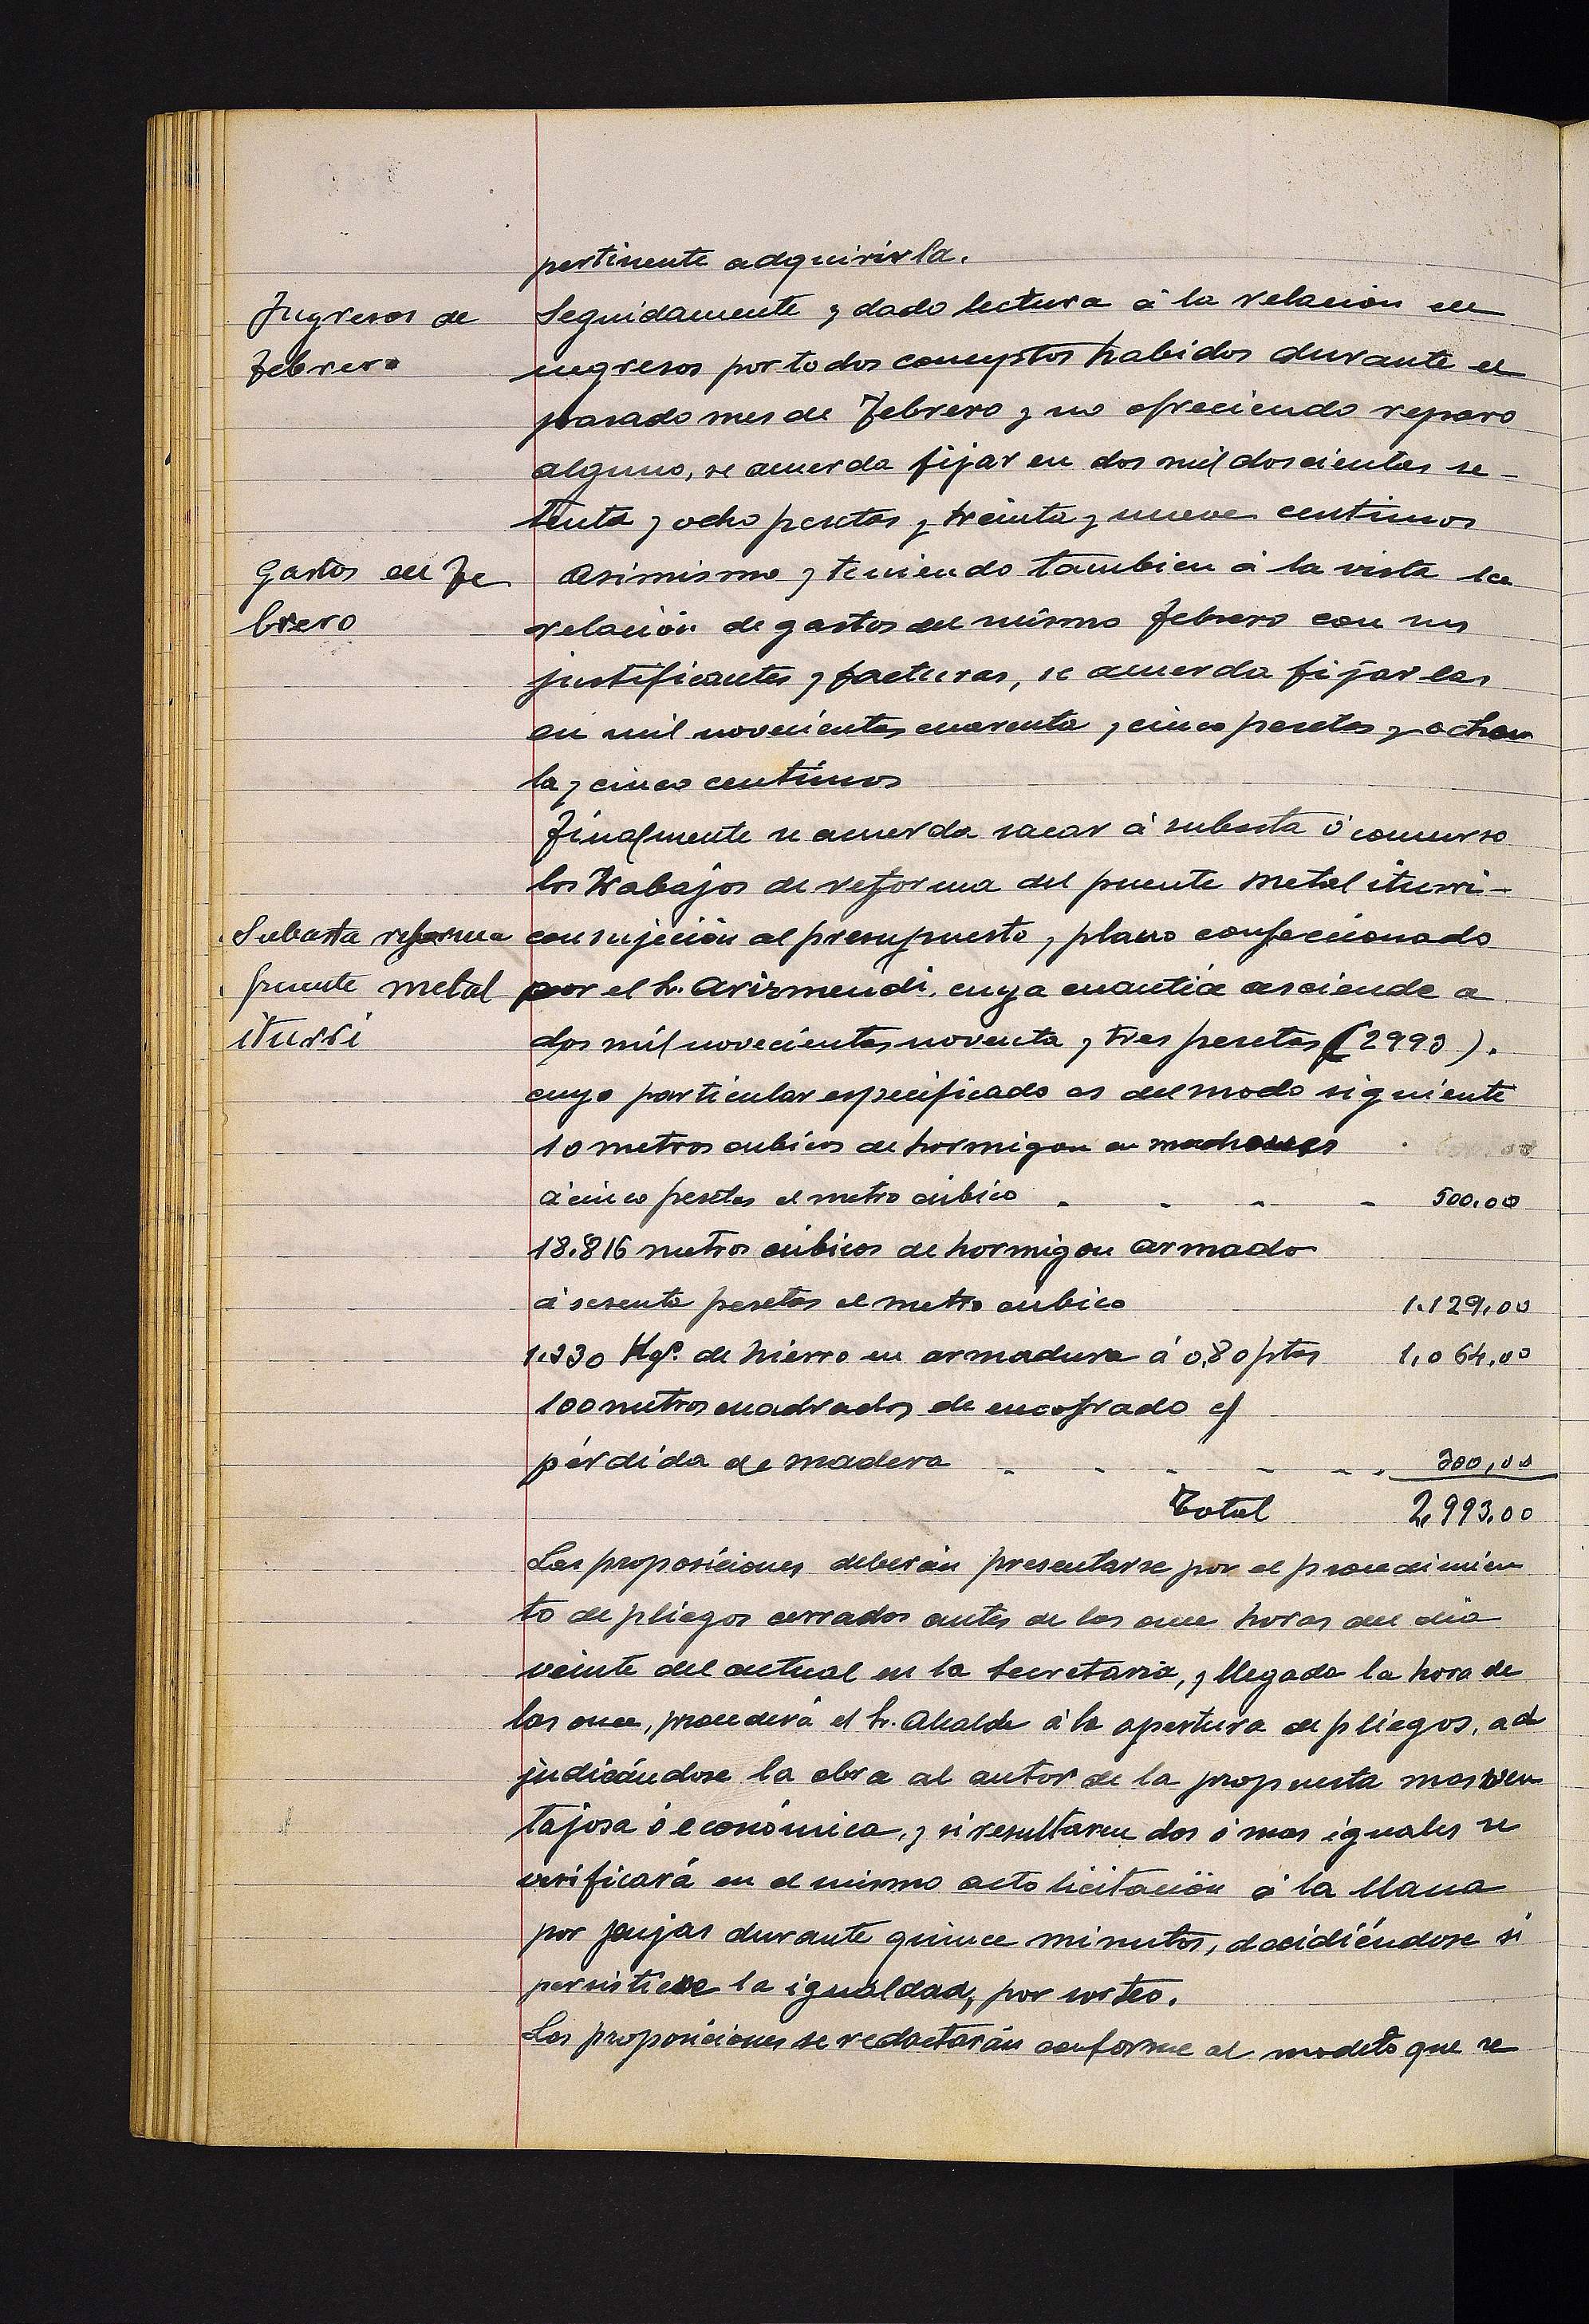 pertinente adquirirla.
Ingresos de
Febrero
Seguidamente y dado lectura á la relación de
ingresos por todos conceptos habidos durante el
pasado mes de Febrero y no ofreciendo reparo
alguno, se acuerda fijar en dos mil doscientas se-
tenta y ocho pesetas y treinta y nueve centimos
Gastos de Fe
brero
Asimismo y teniendo tambien á la vista la
relación de gastos del mismo Febrero con sus
justificantes y facturas, se acuerda fijarlas
en mil novecientas cuarenta y cinco pesetas y ochen
ta y cinco centimos
Finalmente se acuerda sacar á subasta ó concurso
los trabajos de reforma del puente metal iturri-
Subasta reforma
puente metal
iturri
con sujeción al presupuesto y plano confeccionado
por el Sr. Arizmendi, cuya cuantía asciende a
dos mil novecientas noventa y tres pesetas (2993).
cuyo particular especificado es del modo siguiente
10 metros cubicos de hormigon en machones
á cinco pesetas el metro cúbico - - - - 500,00
18.816 metros cúbicos de hormigon armado
á sesenta pesetas el metro cubico 1.129,00
1.330 Kgs. de hierro en armadura á 0,80 ptas 1,064,00
100 metros cuadrados de encofrado c/
pérdida de madera - - - - - - 300,00
Total 2,993,00
Las proposiciones deberán presentarse por el procedimien
to de pliegos cerrados antes de las once horas del dia
veinte del actual en la Secretaria, y llegada la hora de
las once, procederá el Sr. Alcalde á la apertura de pliegos, ad
judicándose la obra al autor de la propuesta mas ven
tajosa ó económica, y si resultaren dos ó mas iguales se
verificará en el mismo acto licitación á la llana
por pujas durante quince minutos, decidiéndose si
persistiese la igualdad, por sorteo.
Las proposiciones se redactarán conforme al modelo que se